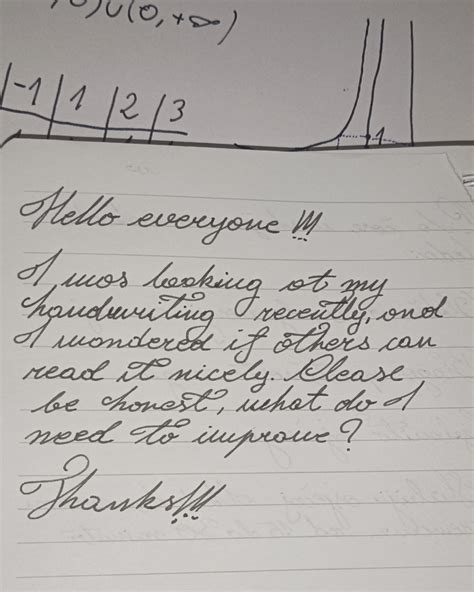 )∪(0,+∞)
-1 1 2 3
1
Hello everyone !!!
I was looking at my
handwriting recently, and
I wondered if others can
read it nicely. Please
be honest, what do I
need to improve?
Thanks!!!